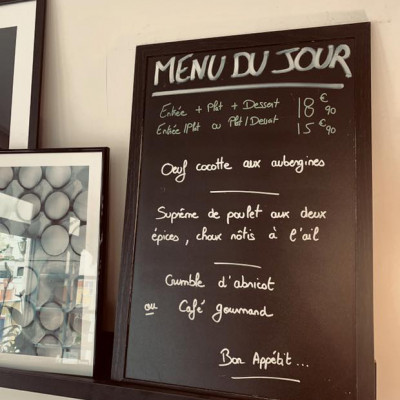 MENU DU JOUR
Entrée + Plat + Dessert 18€90
Entrée/Plat ou Plat/Dessert 15€90
Oeuf cocotte aux aubergines
Suprême de poulet aux deux
épices, choux rôtis à l'ail
Crumble d'abricot
ou Café gourmand
Bon Appétit...